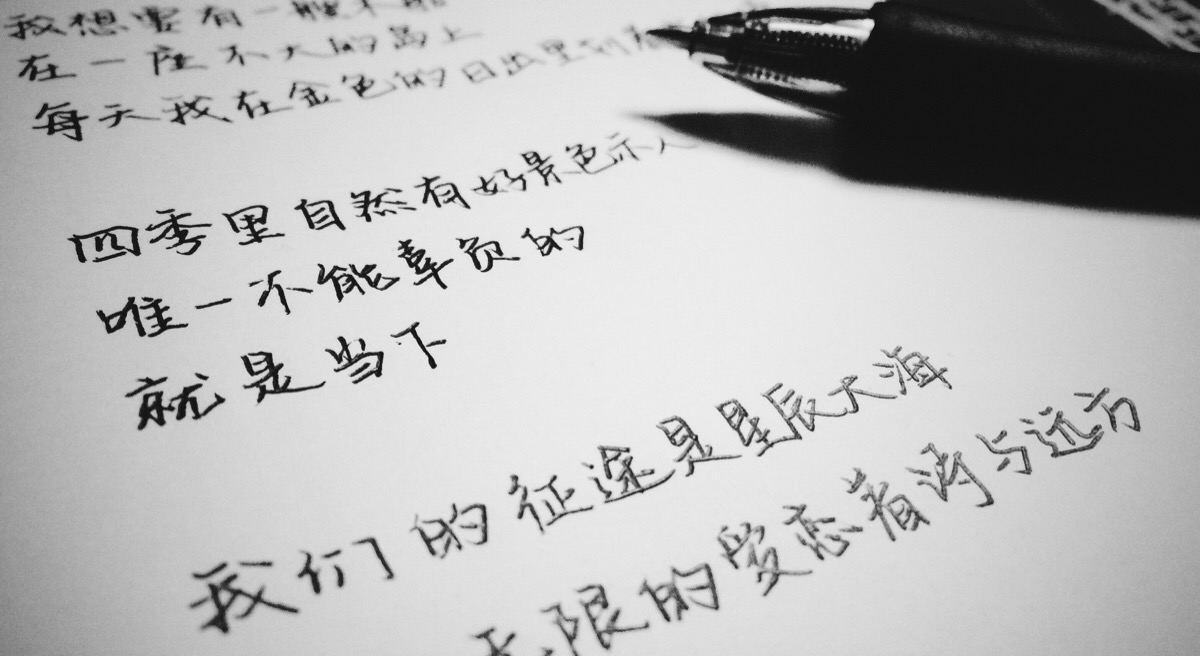 我想要有一艘木船
在一座不大的岛上
每天我在金色的日出里划着
四季里自然有好景色示人
唯一不能辜负的
就是当下
我们的征途是星辰大海
无限的爱恋着诗与远方